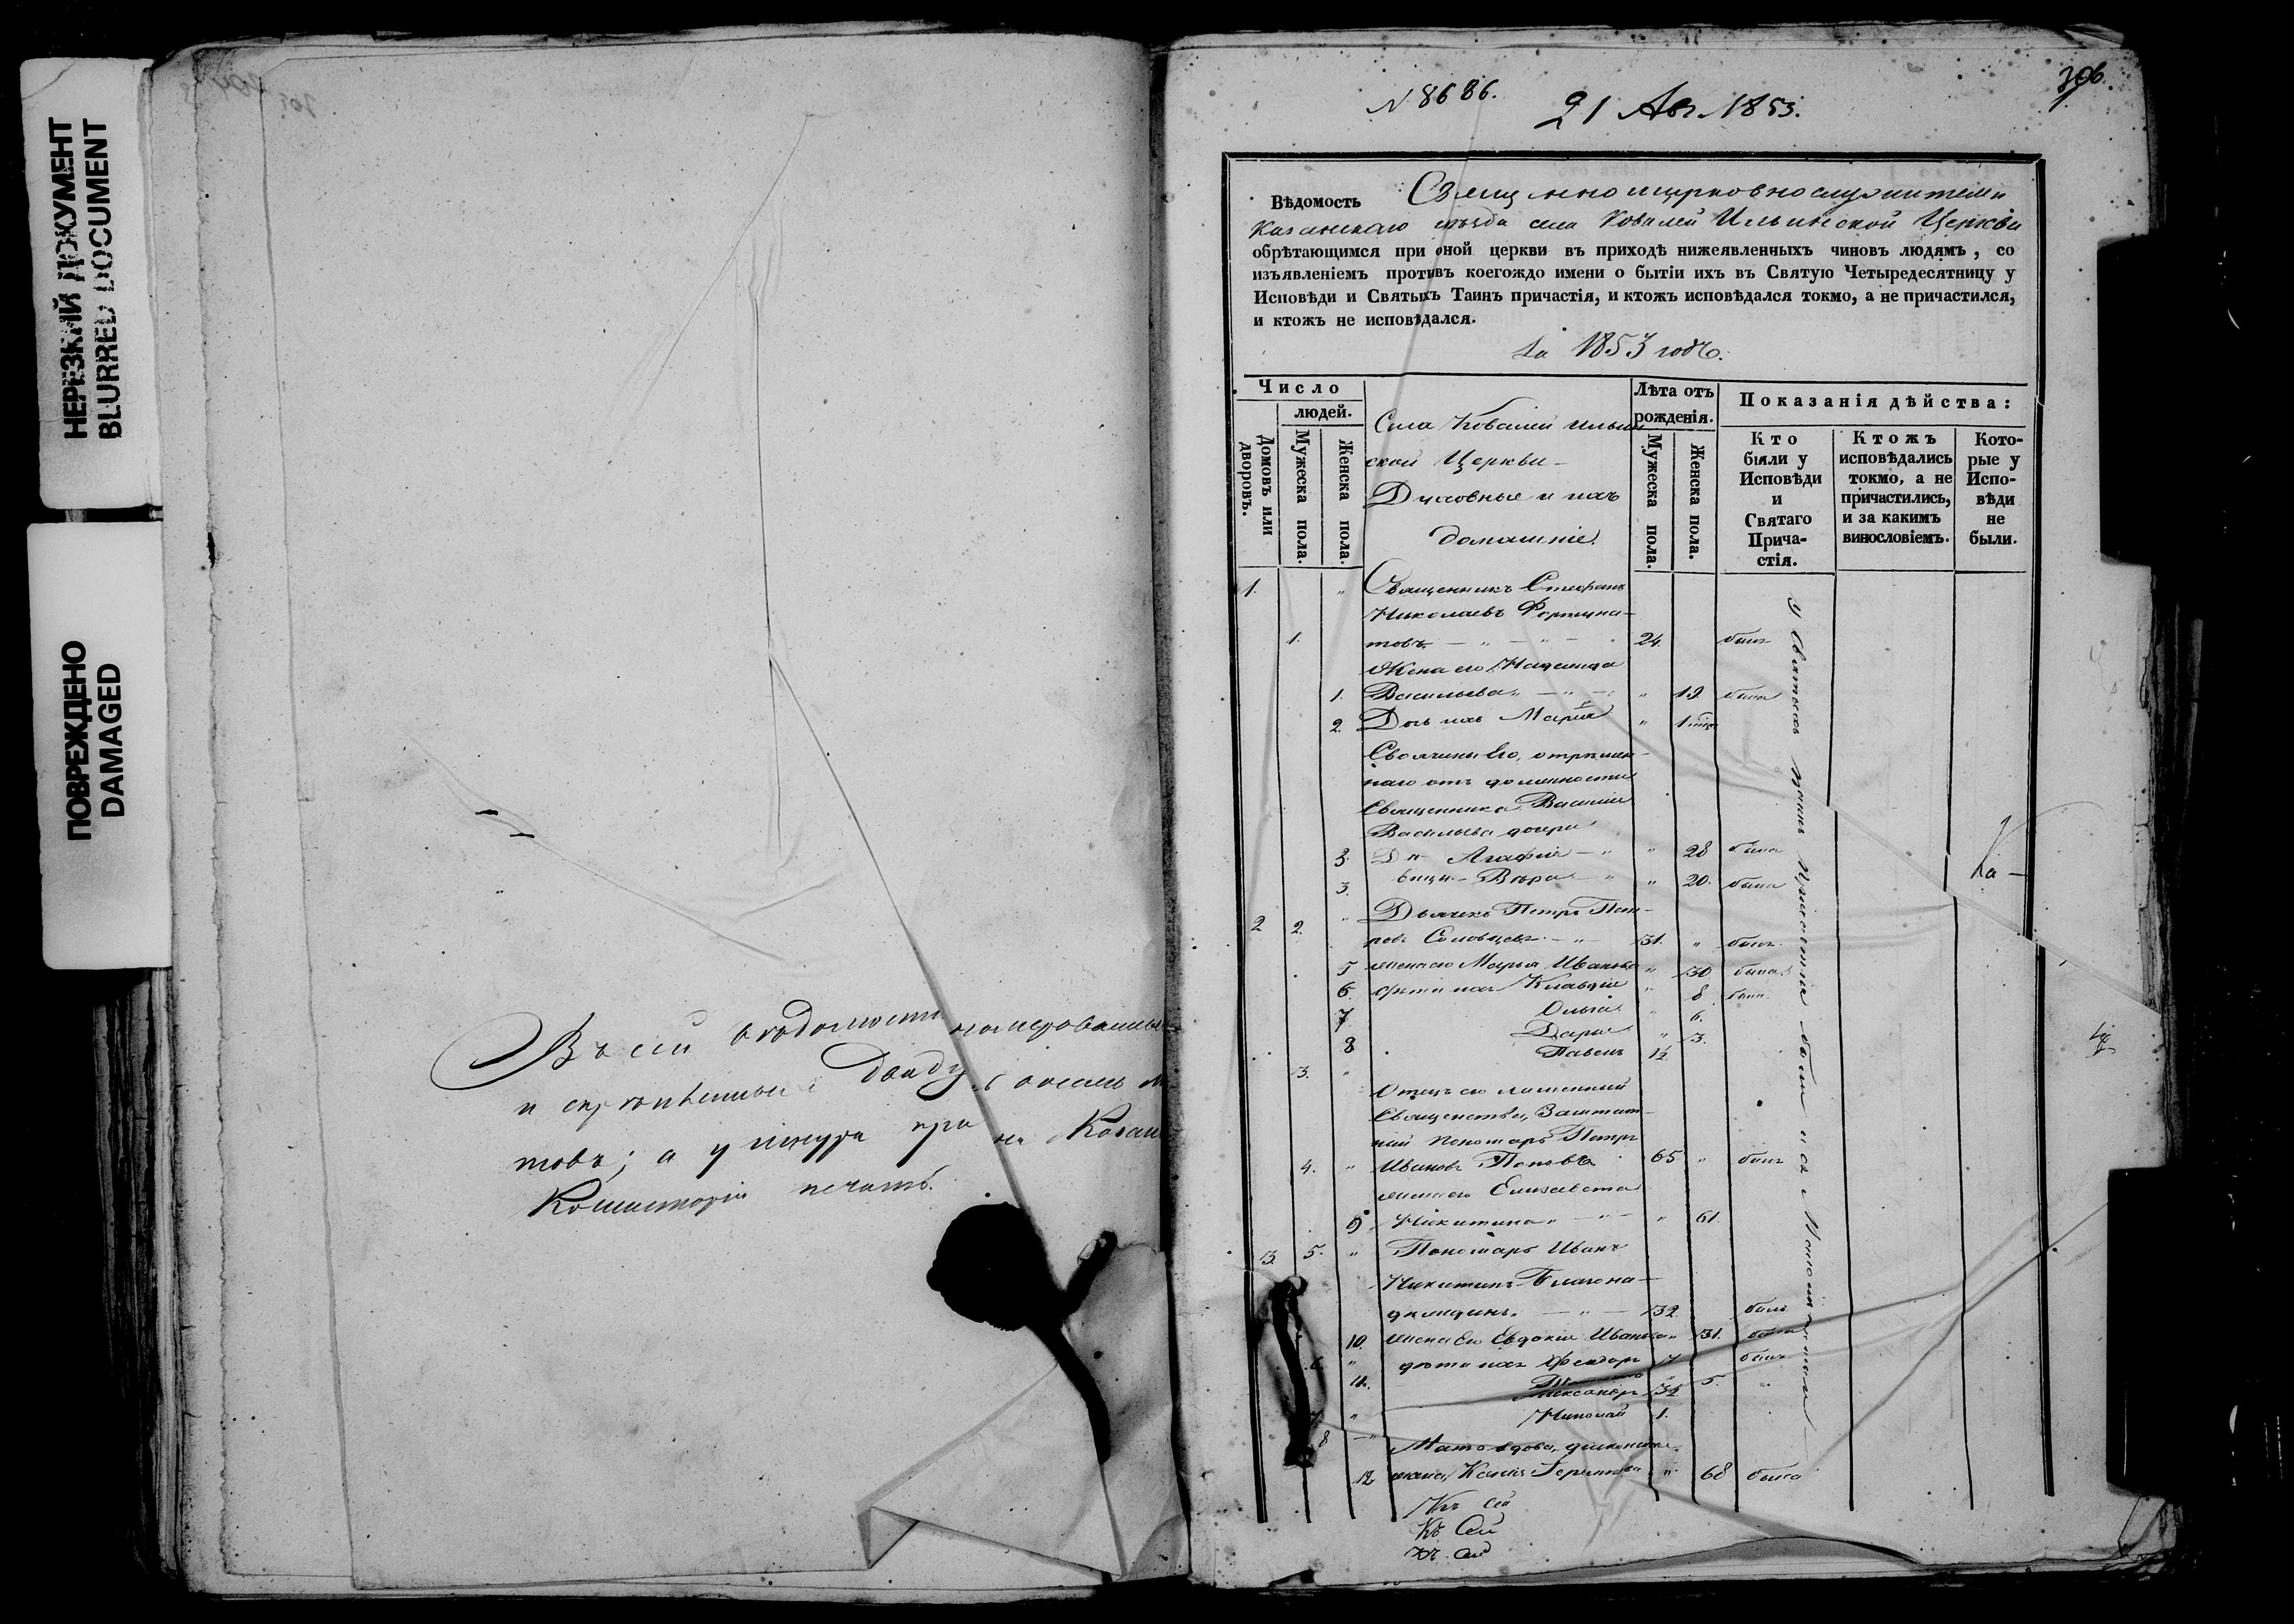 НЕРЕЗКИЙ ДОКУМЕНТ
BLURRED DOCUMENT
ПОВРЕЖДЕНО
DAMAGED
Въ сей вѣдомости нумерованныхъ
и скрѣпленныхъ двадцать восемь
товъ; а у шнура при на Казан
Консисторіи печать.
N 8686.
21 Авг. 1853.
306.
Вѣдомость Священноцерковнослужители
Казанскаго уѣзда села Ковалей Ильинской Церкви
обрѣтающимся при оной церкви въ приходѣ нижеявленныхъ чиновъ людямъ, со
изъявленіемъ противъ коегождо имени о бытіи ихъ въ Святую Четыредесятницу у
Исповѣди и Святыхъ Таинъ причастія, и ктожъ исповѣдался токмо, а не причастился,
и ктожъ не исповѣдался.
За 1853 годъ.
Число
людей.
Домовъ или дворовъ.
Мужеска пола.
Женска пола.
Села Ковалей Ильин
ской Церкви
Духовные и ихъ
домашніе.
Лѣта отъ рожденія.
Мужеска пола.
Женска пола.
Показанія дѣйства:
Кто были у Исповѣди и Святаго Прича-стія.
Ктожъ исповѣдались токмо, а не причастились, и за какимъ винословіемъ.
Кото-рые у Испо-вѣди не были.
1. " Священникъ Стефанъ
Николаевъ Фортуна-
1. товъ — " — " — 24. былъ
Жена его Надежда
1. Васильева " — " — " 19 была
2. Дочь ихъ Марія " 1
Своячины Его, отрѣшен-
наго отъ должности
Священника Василія
Васильева дочери
3. Агафія — " " 28 была
3. Вѣра — " " 20. была
2 2. " Дьячекъ Петръ Пет-
ровъ Соловцевъ — " 31. " былъ
5 жена его Марья Иванова " 30 была
6. дѣти ихъ Клавдія " 8 была
7 Ольга " 6.
8 Дарья " 3.
3. " Павелъ 1½
Отецъ его лишенный
Священства, Заштат-
ный пономарь Петръ
4. " Ивановъ Поповъ 65 " былъ
жена его Елизавета
9 Никитина " — " — " 61.
3. 5. " Пономарь Иванъ
Никитинъ Благона-
деждинъ. — " — 32. былъ
10. жена Его Евдокія Иванова " 31. была
6 " дѣти ихъ Ѳеодоръ 7 былъ
11. 5.
7 " Александръ 3½
8 — " Николай 1.
Мать вдова, дьяконска
12 жена, " 68 была
У Святыхъ Таинъ Причастія были
За —
Къ сей
Къ Сей
Къ сей